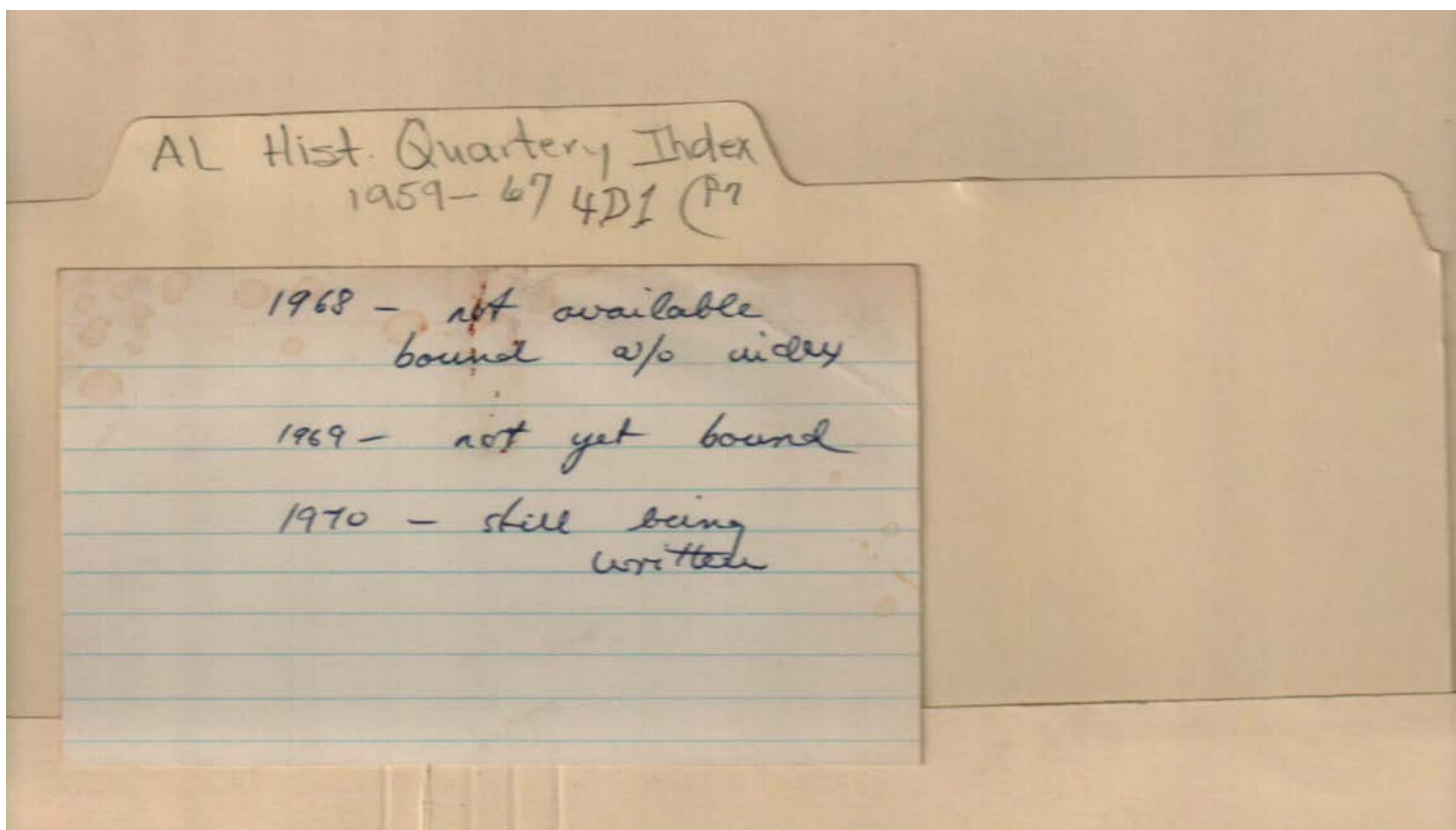 AL Hist. Quartery Index
1959-67 4D1 (P7
1968 - not available
bound w/o index
1969 - not yet bound
1970 - still being
written